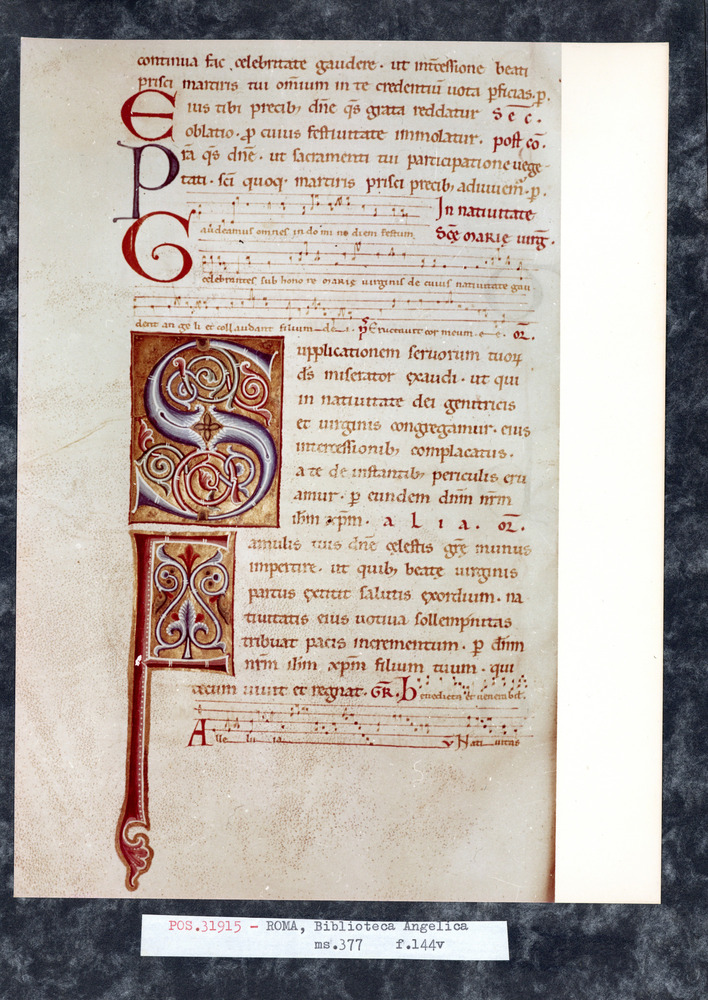 continua fac celebritate gaudere. ut int̄cessione beati
prisci martiris tui om̄ium in te credentiū uota p̄ficias. p̄.
Eius tibi precib; dn̄e q̄s grata reddatur S ē C̄.
oblatio. p̄ cuius festiuitate immolatur. post cō.
Prā q̄s dn̄e. ut sacramenti tui participatione uege
tati. sc̄i quoq; martiris prisci precib; adiuuem̄. p̄.
In natiuitate
Gaudeamus omnes in do mi no diem festum. Sc̄ę MARIE uirḡ.
celebrantes sub hono re MARIĘ uirginis de cuius natiuitate gau
dent an ge li et collaudant filium de i. p̄s Eructauit cor meum. e e. OR̄.
Supplicationem seruorum tuoꝝ
ds̄ miserator exaudi. ut qui
in natiuitate dei genitricis
et uirginis congregamur. eius
intercessionib; complacatus.
a te de instantib; periculis eru
amur. p̄ eundem dn̄m nr̄m
ih̄m xp̄m. A L I A. OR̄.
Famulis tuis dn̄e cęlestis gr̄ę munus
impertire. ut quib; beatę uirginis
partus extitit salutis exordium. na
tiuitatis eius uotiua sollempnitas
tribuat pacis incrementum. p̄ dn̄m
nr̄m ih̄m xp̄m filium tuum. qui
tecum uiuit et regnat. GR̄. Benedicta et uenerabil.
Alle lu ia v̄ Nati uitas
POS.31915 - ROMA, Biblioteca Angelica
ms.377 f.144v